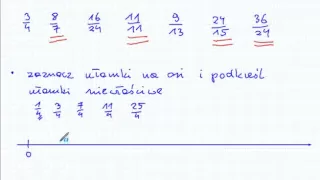 3/4 8/7 16/24 11/11 9/13 24/15 36/24
• zaznacz ułamki na osi i podkreśl
ułamki niewłaściwe
1/4 3/4 7/4 11/4 25/4
0